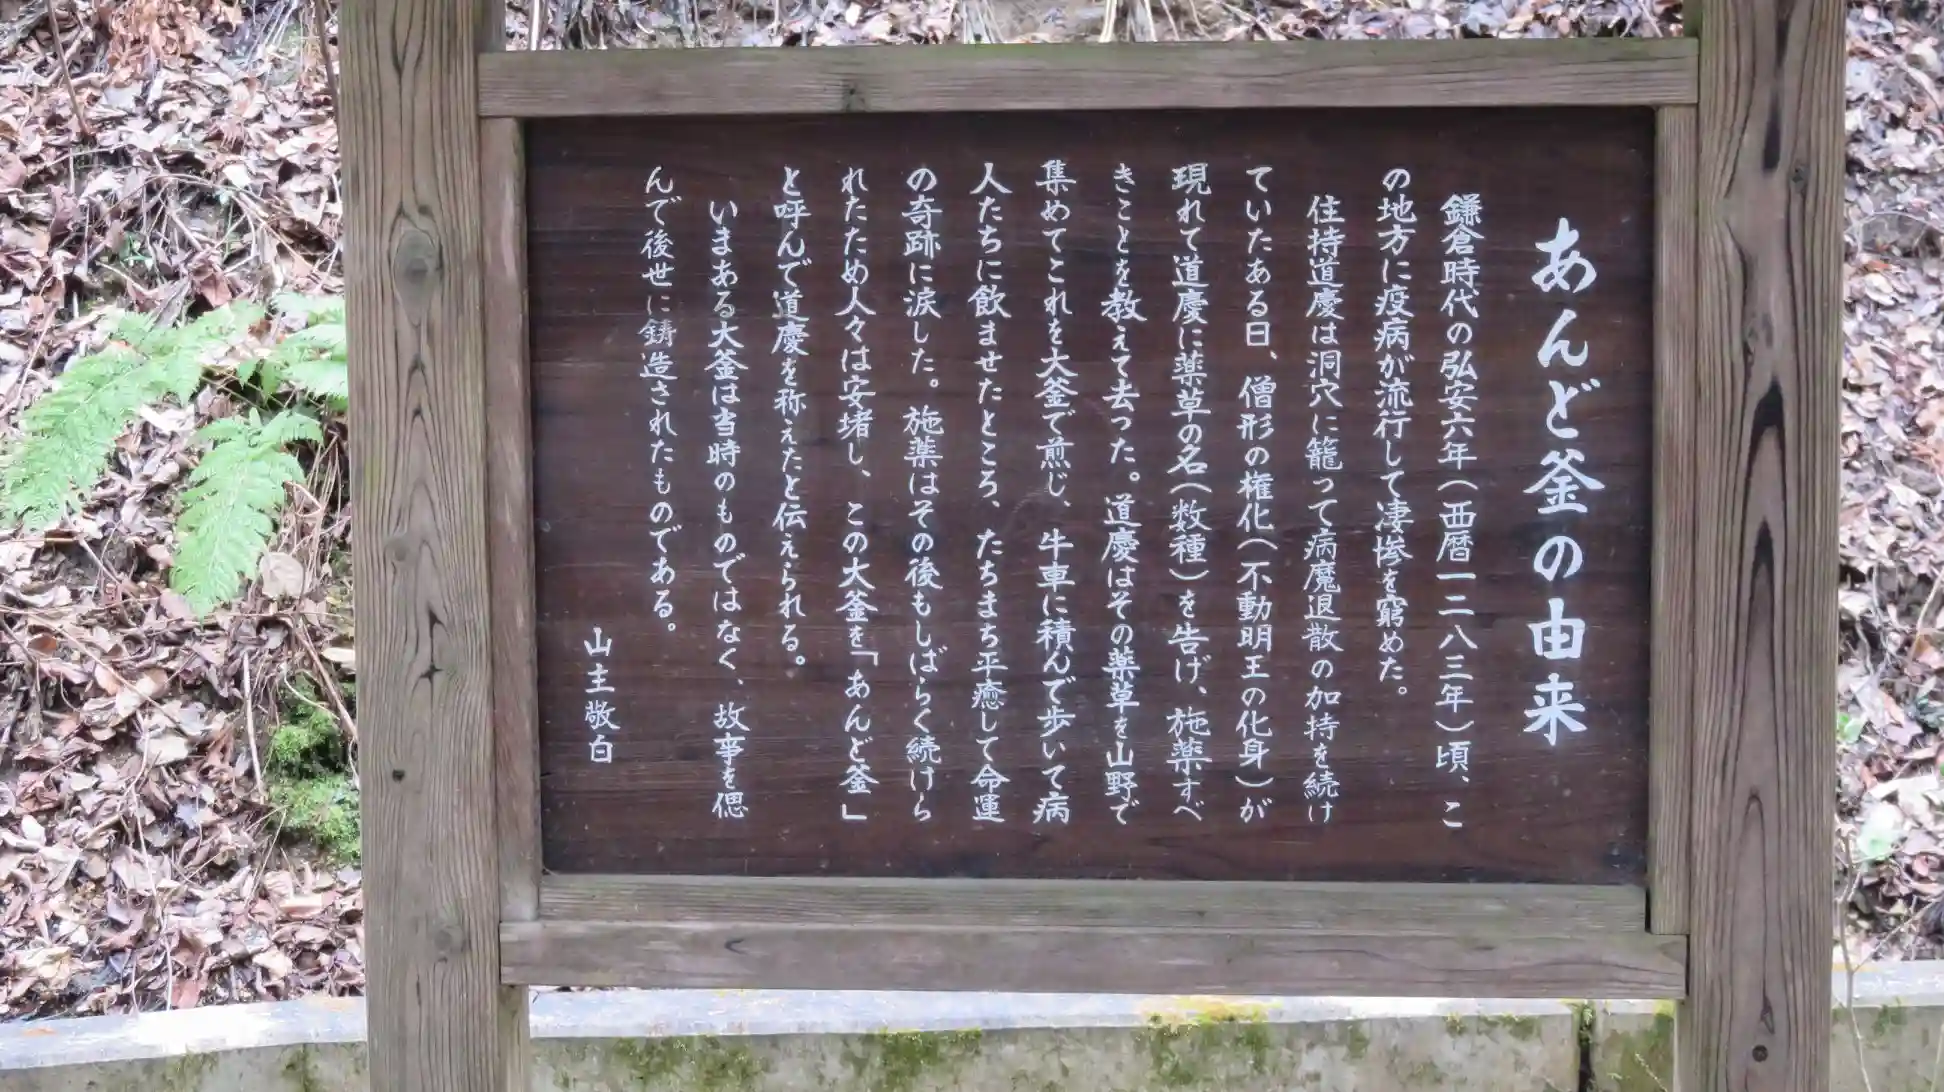 あんど釜の由来
鎌倉時代の弘安六年(西暦一二八三年)頃、こ
の地方に疫病が流行して凄惨を窮めた。
住持道慶は洞穴に籠って病魔退散の加持を続け
ていたある日、僧形の権化(不動明王の化身)が
現れて道慶に薬草の名(数種)を告げ、施薬すべ
きことを教えて去った。道慶はその薬草を山野で
集めてこれを大釜で煎じ、牛車に積んで歩いて病
人たちに飲ませたところ、たちまち平癒して命運
の奇跡に涙した。施薬はその後もしばらく続けら
れたため人々は安堵し、この大釜を「あんど釜」
と呼んで道慶を称えたと伝えられる。
いまある大釜は当時のものではなく、故事を偲
んで後世に鋳造されたものである。
山主敬白